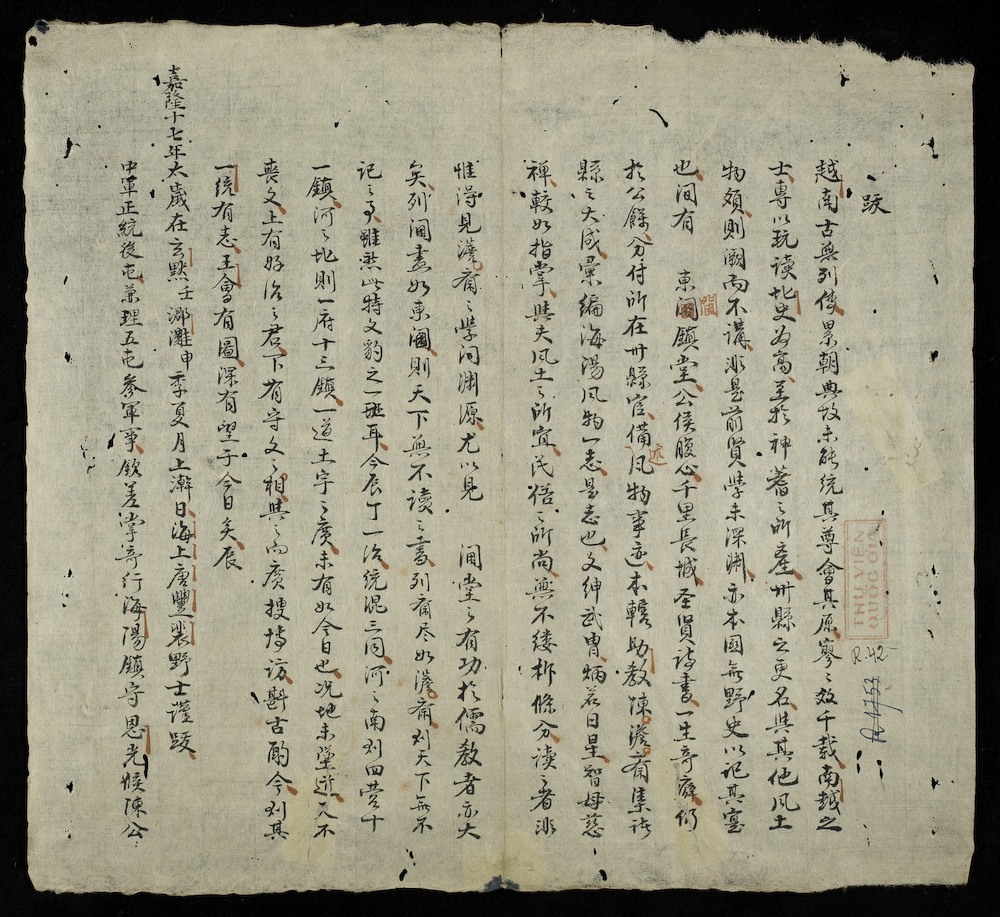 跋
越南古無列傳累朝典故未能統其尊會其原寥〻数千載南越之
士專以玩读北史為高至於神蓍〻所產州縣之更名與其他風土
物類則闕而不講非是前賢学未深渊亦本国無野史以记其寔
也间有 東閫鎮堂公侯腹心千里長城圣賢诗書一生奇癖仍
於公餘分付所在州縣官備述風物事迹本轄助教陳澹齋集诸
縣之大成彙编海陽風物一志是志也文紳武胄炳若日星智母慈
禅較如指掌與夫风土〻所宜民俗〻所尚無不缕析條分读〻者非
惟淂見澹齋〻学问渊源尤以見 閫堂〻有功於儒教者亦大
矣列閫盡如東閫則天下無不读〻書列齋尽如澹齋则天下無不
记〻事雖然此特文豹之一斑耳今辰丁一治統混三同河〻南则四营十
一鎮河〻北則一府十三鎮一道土宇〻廣未有如今日也况地未墜逝人不
喪文上有好治〻君下有守文〻相與〻而廣搜博访斟古酌今则其
一統有志王會有圖深有望于今日矣辰
嘉隆十七年太歲在玄黓壬涒灘申季夏月上澣日海上唐豐裴野士谨跋
中軍正統後屯兼理五屯參軍事欽差掌寄行海陽鎮守恩光候陳公
閫
THƯ VIỆN
QUỐC GIA
R.42
R.1753